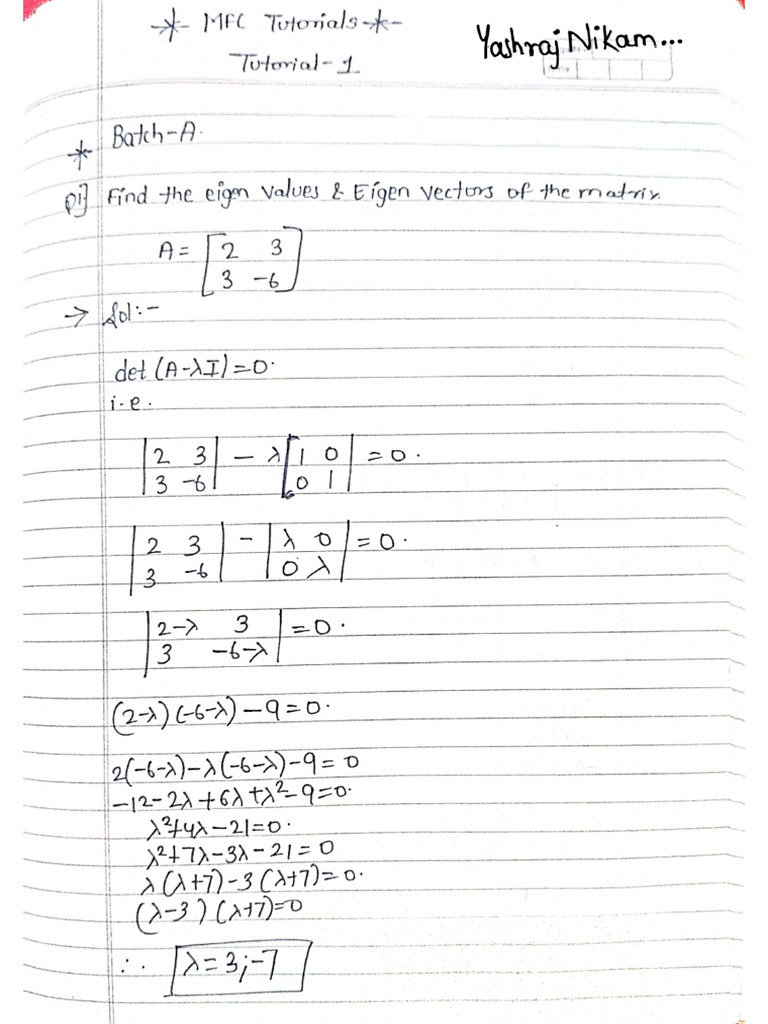 -*- MFC Tutorials -*-
Yashraj Nikam...
Tutorial-1
* Batch-A.
Q1] Find the eigen values & Eigen vectors of the matrix.
A = [2 3
3 -6]
→ Sol:-
det (A-λI)=0.
i.e.
|2 3| - λ[1 0| = 0.
|3 -6| [0 1|
|2 3| - |λ 0| = 0.
|3 -6| |0 λ|
|2-λ 3| = 0.
|3 -6-λ|
(2-λ)(-6-λ)-9=0.
2(-6-λ)-λ(-6-λ)-9=0
-12-2λ+6λ+λ²-9=0.
λ²+4λ-21=0.
λ²+7λ-3λ-21=0
λ(λ+7)-3(λ+7)=0.
(λ-3)(λ+7)=0
∴ λ=3;-7